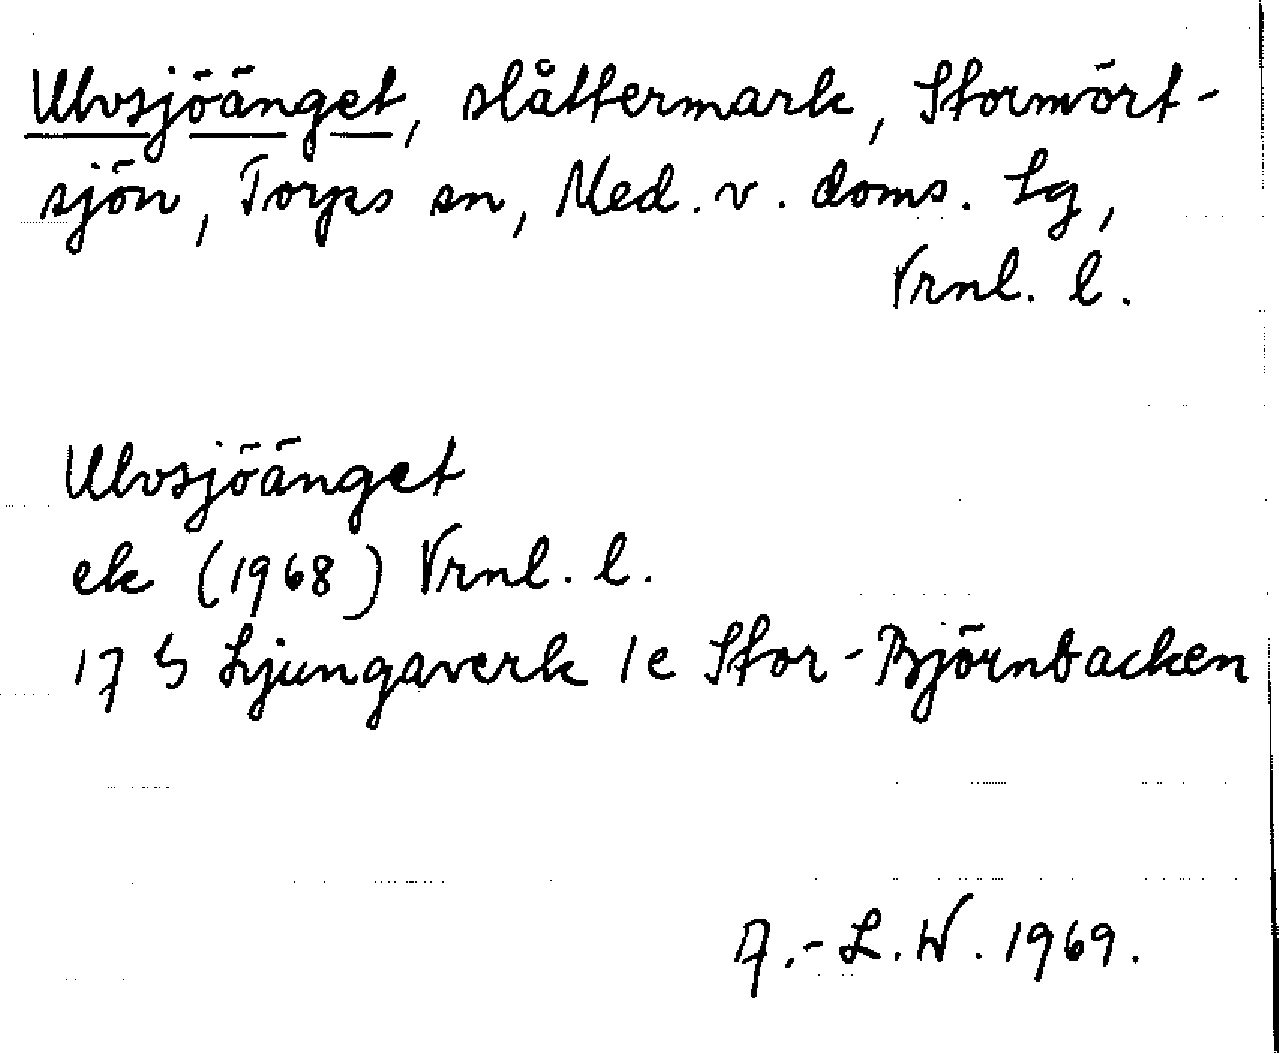 Ulvsjöänget, slåttermark, Stormört-
sjön, Torps sn, Med. v. doms. Lg,
Vrnl. l.
Ulvsjöänget
ek (1968) Vrnl. l.
17 S Ljungaverk 1e Stor-Björnbacken
A.-L.W. 1969.